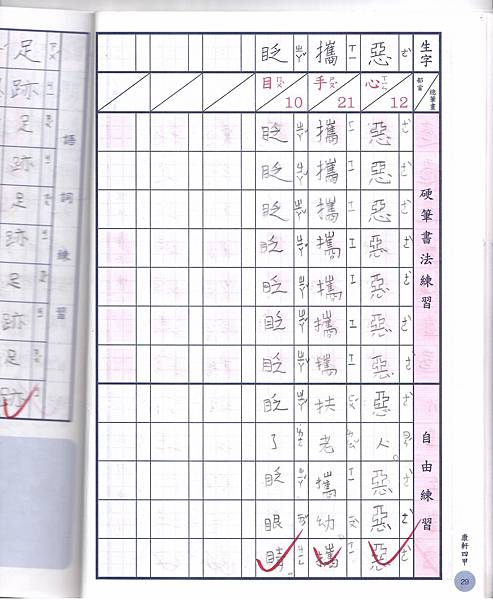 生字
部首 總筆畫
硬筆書法練習
自由練習
惡 ㄜˋ
心 12
惡惡惡惡惡惡惡
惡人。惡惡惡
攜 ㄒㄧ
手 21
攜攜攜攜攜攜攜
扶老攜幼攜
眨 ㄓㄚˇ
目 10
眨眨眨眨眨眨眨
眨了眨眼睛
康軒四甲
29
語詞練習
足跡足跡足跡足跡足跡